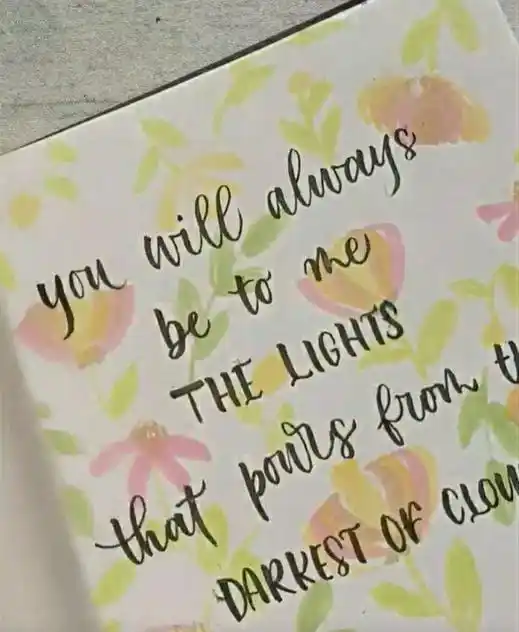 you will always
be to me
THE LIGHTS
that pours from t
DARKEST OF CLOU